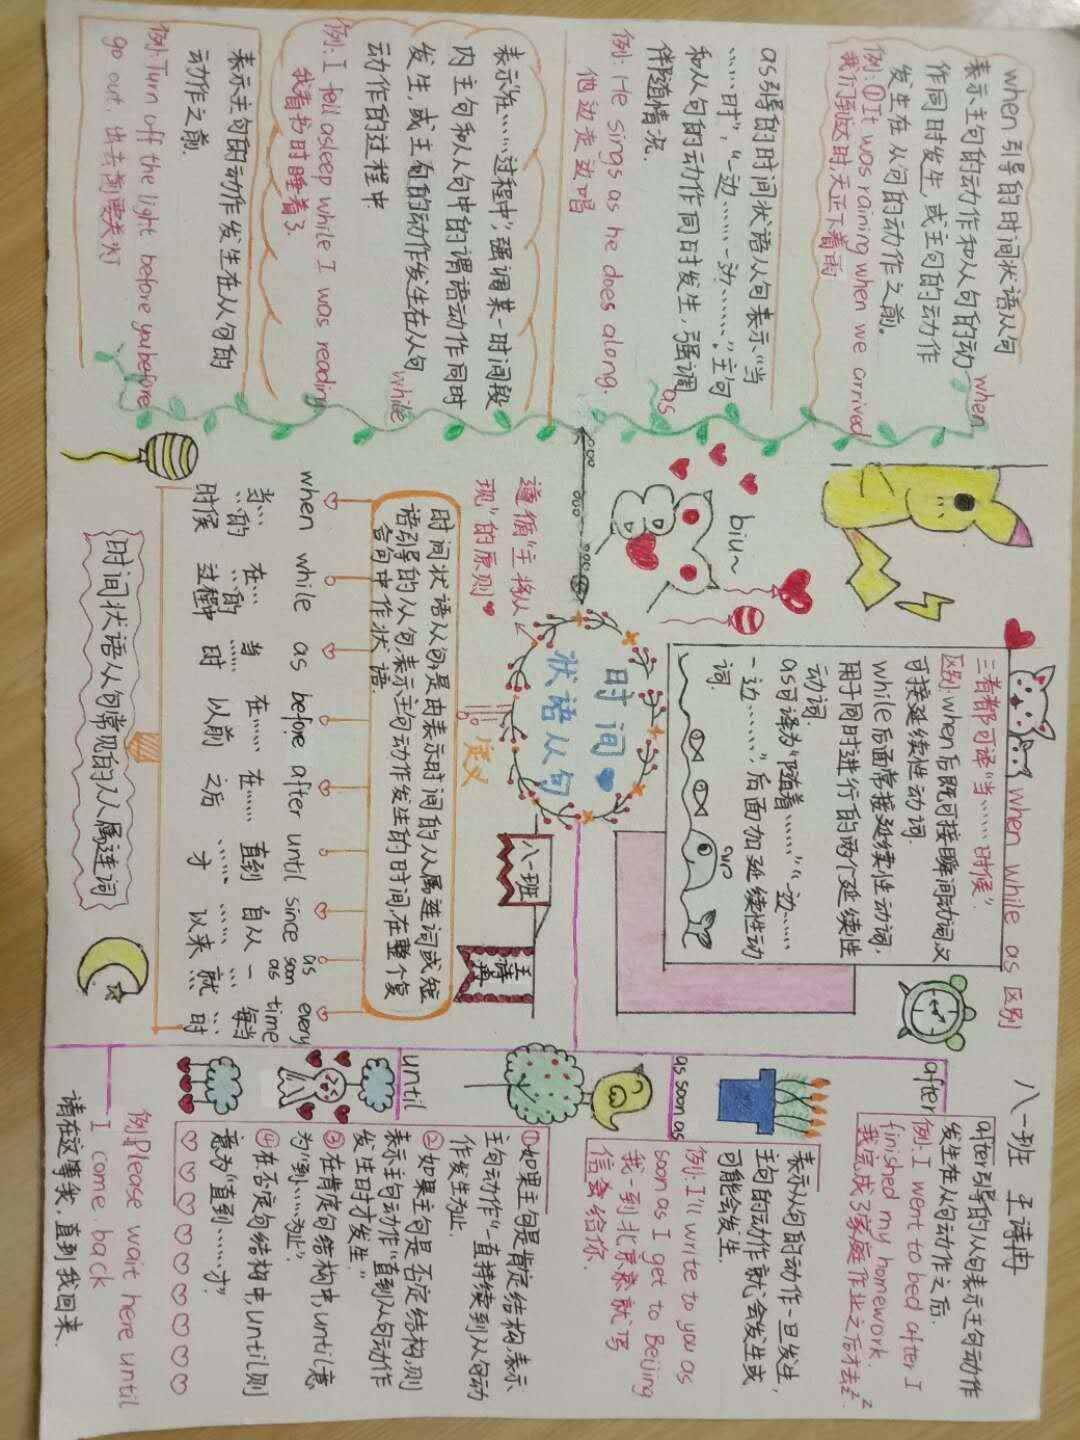 when引导的时间状语从句
表示主句的动作和从句的动
作同时发生,或主句的动作
发生在从句的动作之前。
例:①It was raining when we arrived
我们到这时,天正下着雨
when
as引导的时间状语从句表示“当
……时”,“一边……一边……”主句
和从句的动作同时发生,强调
伴随情况.
例: He sings as he does along.
他边走边唱
as
表示“在……过程中”,强调某一时间段
内主句和从句中的谓语动作同时
发生,或主句的动作发生在从句
动作的过程中.
例: I fell asleep while I was reading
我看书时睡着了.
while
表示主句的动作发生在从句的
动作之前.
例:Turn off the light before you before
go out.
biu~
遵循“主将从
现”的原则
时间
状语从句
定义
时间状语从句,是由表示时间的从属连词或短
语引导的从句,表示主句动作发生的时间,在整个复
合句中作状语.
when while as before after until since as soon as every time
当…的时候
在…的过程中
当……时
在……以前
在……之后
直到……才
自从……以来
一…就…
每当…时
时间状语从句常见的从属连词
when while as 区别
三者都可译“当……时候”.
区别:when后既可接瞬间动词又
可接延续性动词.
while后面常接延续性动词,
用于同时进行的两个延续性
动词.
as可译为“随着……”“一边……
一边……”,后面加延续性动
词.
八一班
王诗冉
八一班 王诗冉
after
after引导的从句表示主句动作
发生在从句动作之后.
例: I went to bed after I
finished my homework.
我完成了家庭作业之后才去zzz.
as soon as
表示从句的动作一旦发生,
主句的动作就会发生或
可能会发生.
例:I'll write to you as
soon as I get to Beijing
我一到北京就写
信给你.
until
①如果主句是肯定结构,表示
主句动作“一直持续到从句动
作发生为止.
②如果主句是否定结构,则
表示主句动作“直到从句动作
发生时才发生.”
③在肯定句结构中,until意
为“到……为止”.
④在否定句结构中,until则
意为“直到……才”.
例:Please wait here until
I come back
请在这等我,直到我回来.